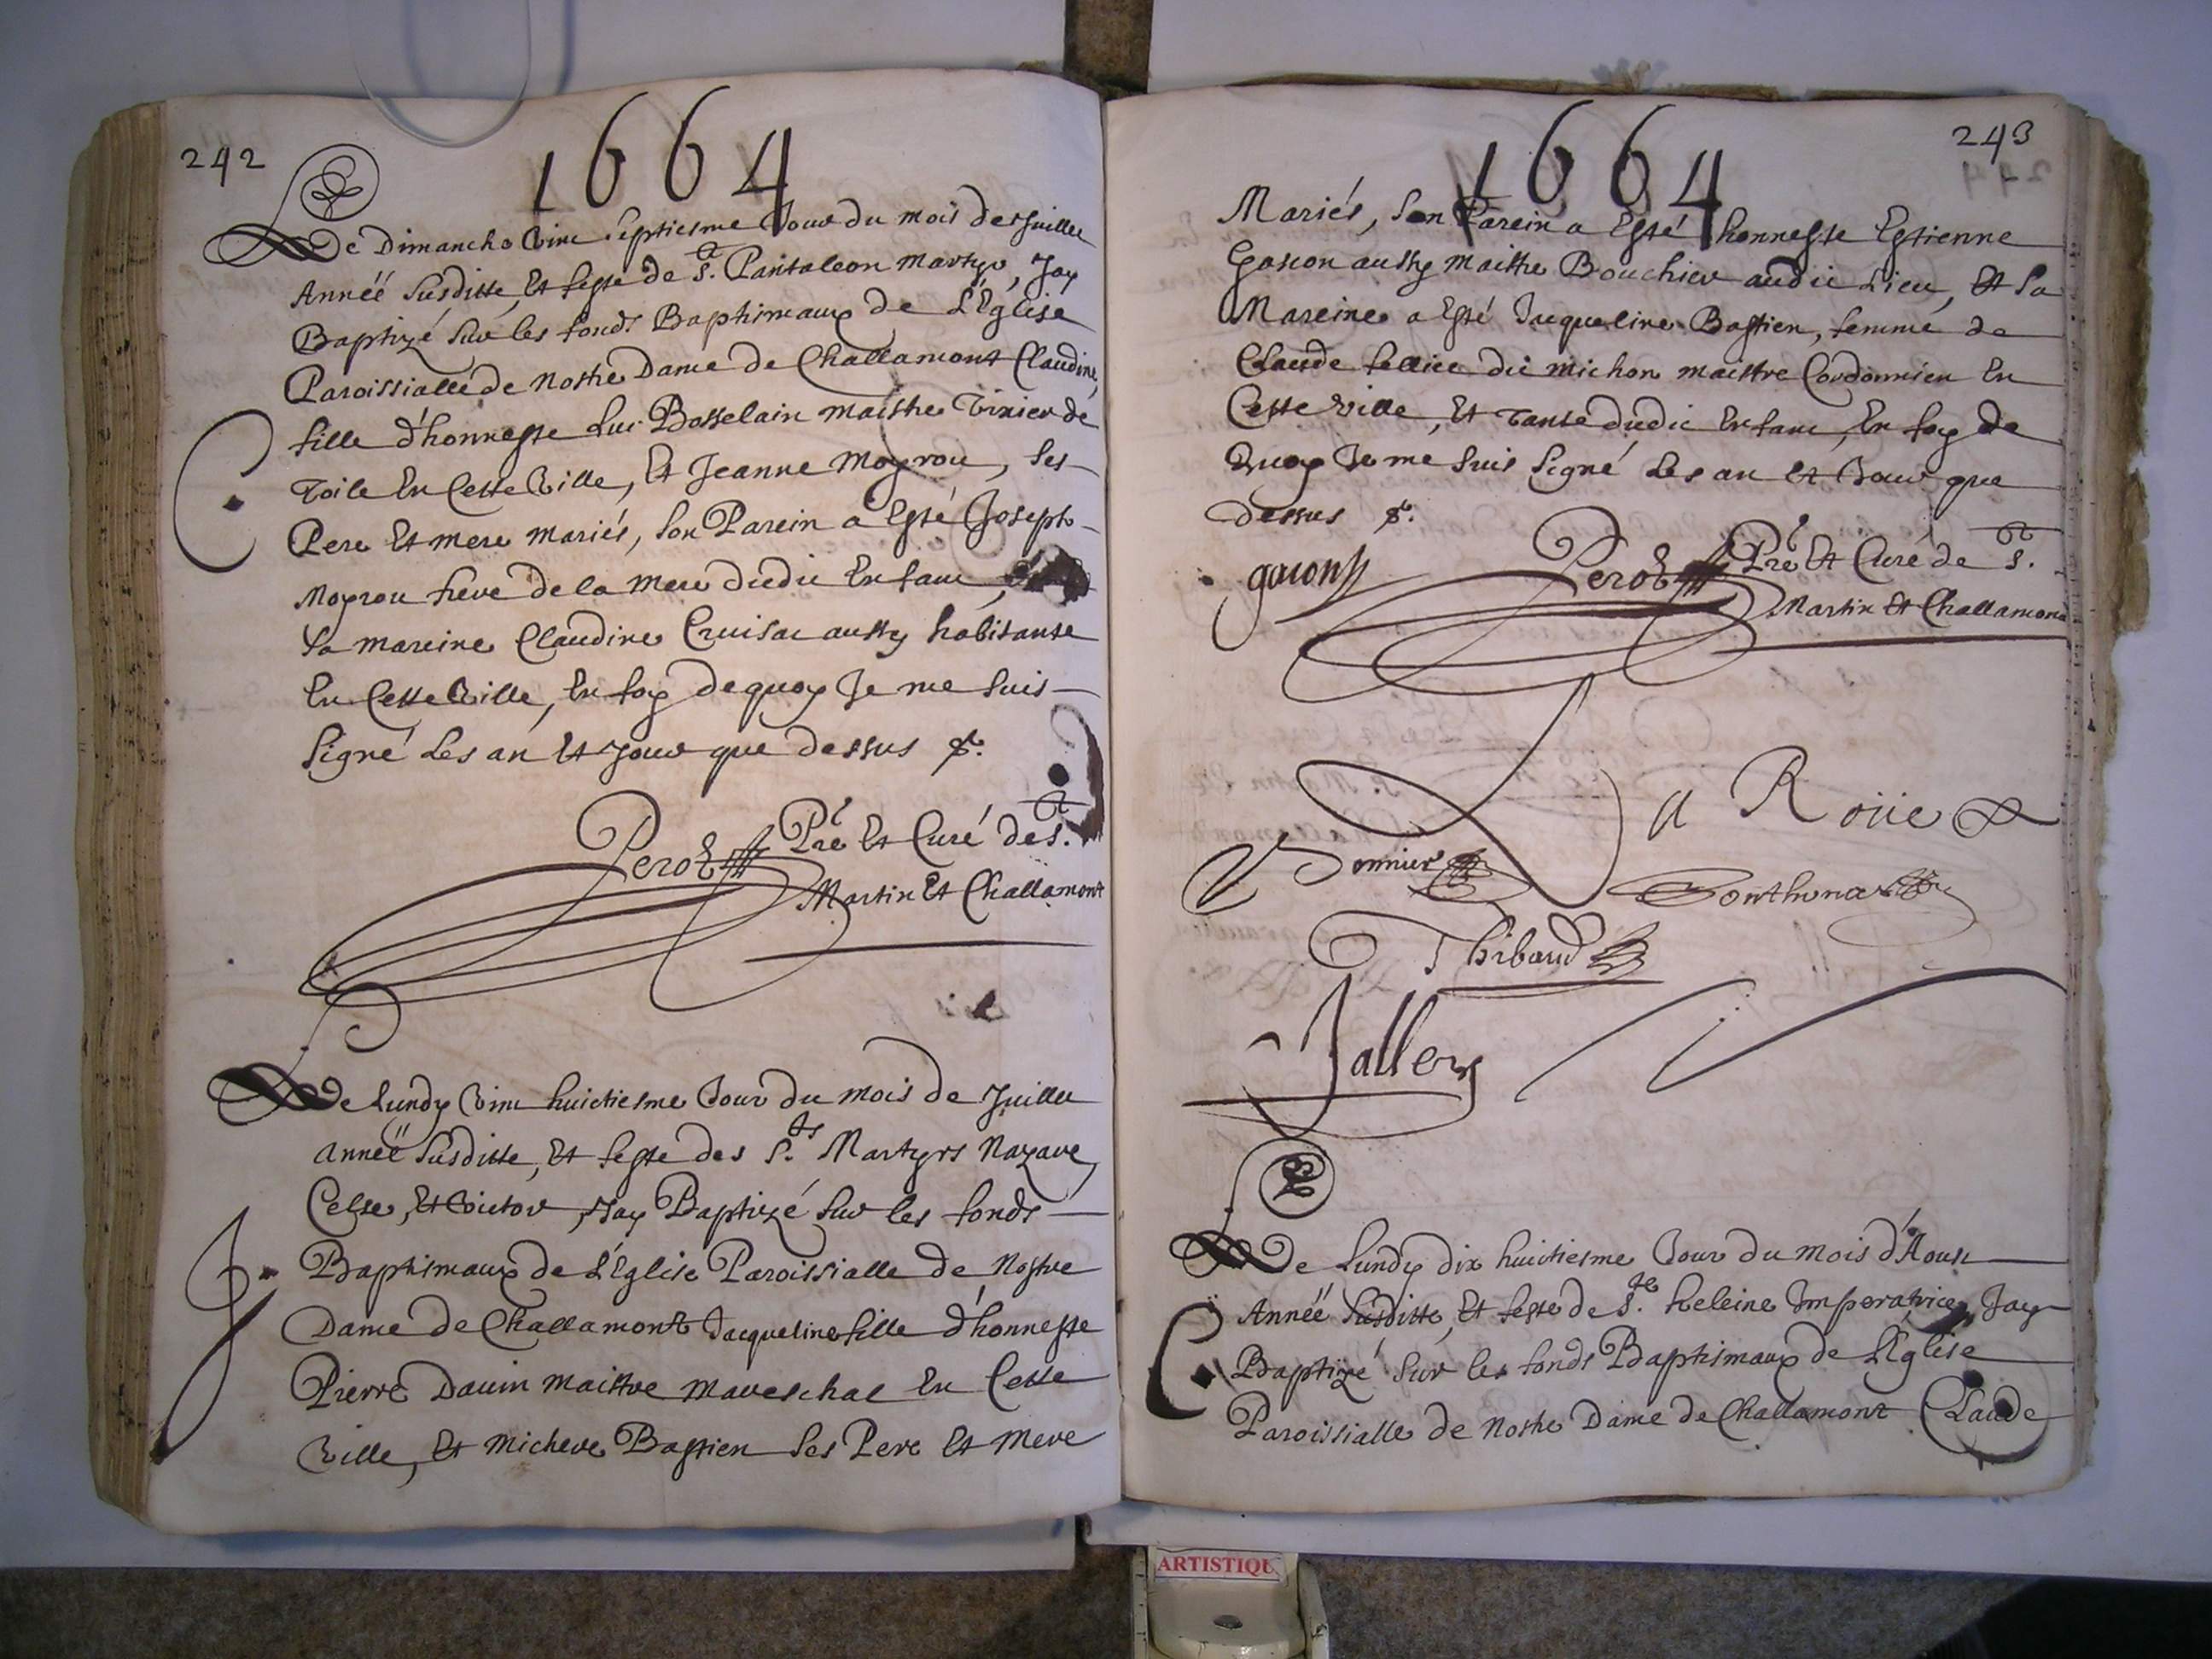 242
1664
Le Dimanche vint septiesme Jour du mois de Juillet
Année susditte, Et feste de St. Pantaleon martyr, Jay
Baptizé sur les fonds Baptismaux de L'Église
Paroissialle de nostre Dame de Challamont Claudine,
fille d'honneste Luc Bosselain maistre Tixier de
Toile En Cette Ville, Et Jeanne Moyrou, ses
Pere Et mere mariés, son Parein a Esté Joseph
Moyrou frere de la mere dudit Enfant,
sa mareine Claudine Cruisat aussy habitante
En Cette Ville, En foy dequoy Je me suis
signé Les an Et Jour que dessus &.
Perot Pre Et Curé de St.
Martin Et Challamont
Le Lundy vint huictiesme Jour du mois de Juillet
année susditte, Et feste des Sts. Martyrs Nazare,
Celse, Et Victor, Jay Baptizé sur les fonds
Baptismaux de L'Église Paroissialle de Nostre
Dame de Challamont Jacqueline fille d'honneste
Pierre Dauin maistre mareschal En Cette
Ville, Et Michere Bastien ses Pere Et mere
243
1664
Mariés, son Parein a Esté honneste Estienne
Gacon aussy maistre Bouchier audit Lieu, Et sa
Mareine a Esté Jacqueline Bastien, femme de
Claude fellice dit michon maistre Cordonnier En
Cette ville, Et Tante dudit Enfant, En foy de
Quoy Je me suis signé Les an Et Jour que
dessus &.
gacon
Perot Pre Et Curé de St.
Martin Et Challamont
La Roüe
Bonnier
Thibaud
Jallery
Le Lundy dix huictiesme Jour du mois d'Aoust
Année susditte, Et feste de Ste. heleine Imperatrice, Jay
Baptizé sur les fonds Baptismaux de L'Église
Paroissialle de Nostre Dame de Challamont Claude
ARTISTIQU